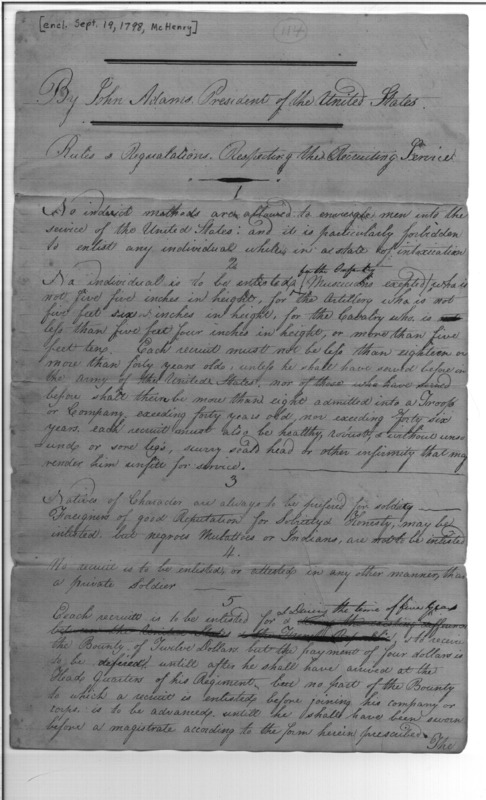 [encl. Sept. 19, 1798, McHenry]
114
By John Adams. President of the United States.
Rules & Regulations. Respecting the Recruiting Service
1
No indirect methods are allowed to inveigle men into the
service of the United States: and it is particularly forbidden
to enlist any individual while in a state of intoxication
2
No individual is to be enlisted, for the Infantry (Musicians excepted) who is
not five five inches in height, for the Artillery who is not
five feet six inches in height, for the Cavalry who is
less than five feet four inches in height, or more than five
feet ten. Each recruit must not be less than eighteen or
more than forty years old, unless he shall have served before in
the army of the United States, nor of those who have served
before shall their be more than eight admitted into a Troop
or Company, exceding forty years old, nor exceding forty six
years. each recruit must also be healthy, robust, & without
sore legs, scurvy scald head or other infirmity that may
render him unfitt for service.
3
Natives of Character are always to be prefered for soldiery
Foreigners of good Reputation for Sobriety & Honesty, may be
enlisted. but negroes Mulattoes or Indians, are not to be enlisted
4
No recruit is to be enlisted or attested in any other manner, than
a private soldier
5
Each recruit is to be enlisted for & during the term of five years
to receive
the Bounty of Twelve Dollars. but the payment of four dollars is
to be defered untill after he shall have arrived at the
Head Quarters of his Regiment, but no part of the Bounty
to which a recruit is entitled, before joining his company or
corps. is to be advanced, untill he shall have been sworn
before a magistrate according to the form herein prescribed.
The